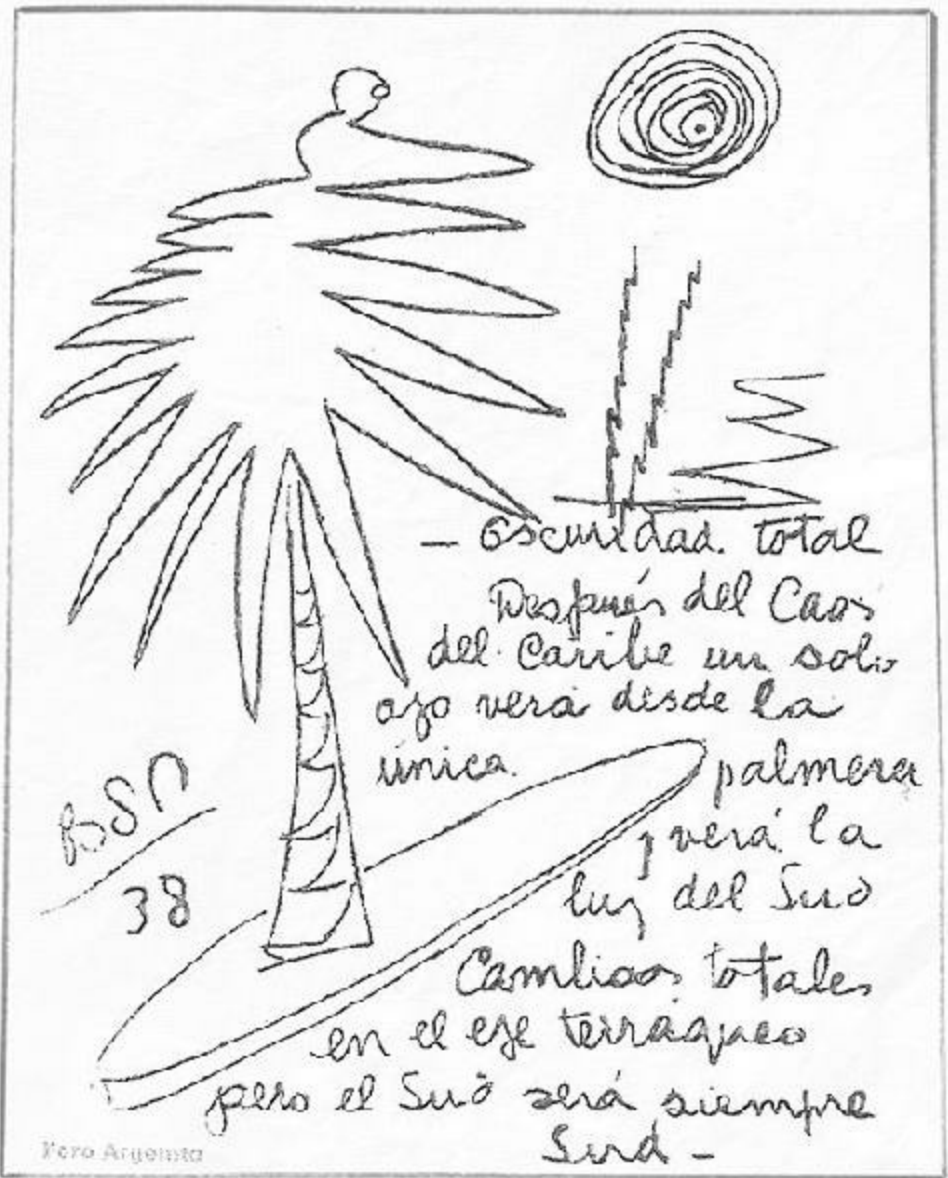 – oscuridad. total
Después del Caos
del Caribe un solo
ojo verá desde la
única. palmera
y verá la
luz del Sud
Cambios totales
en el eje terráqueo
pero el Sud será siempre
Sud –
BSP
38